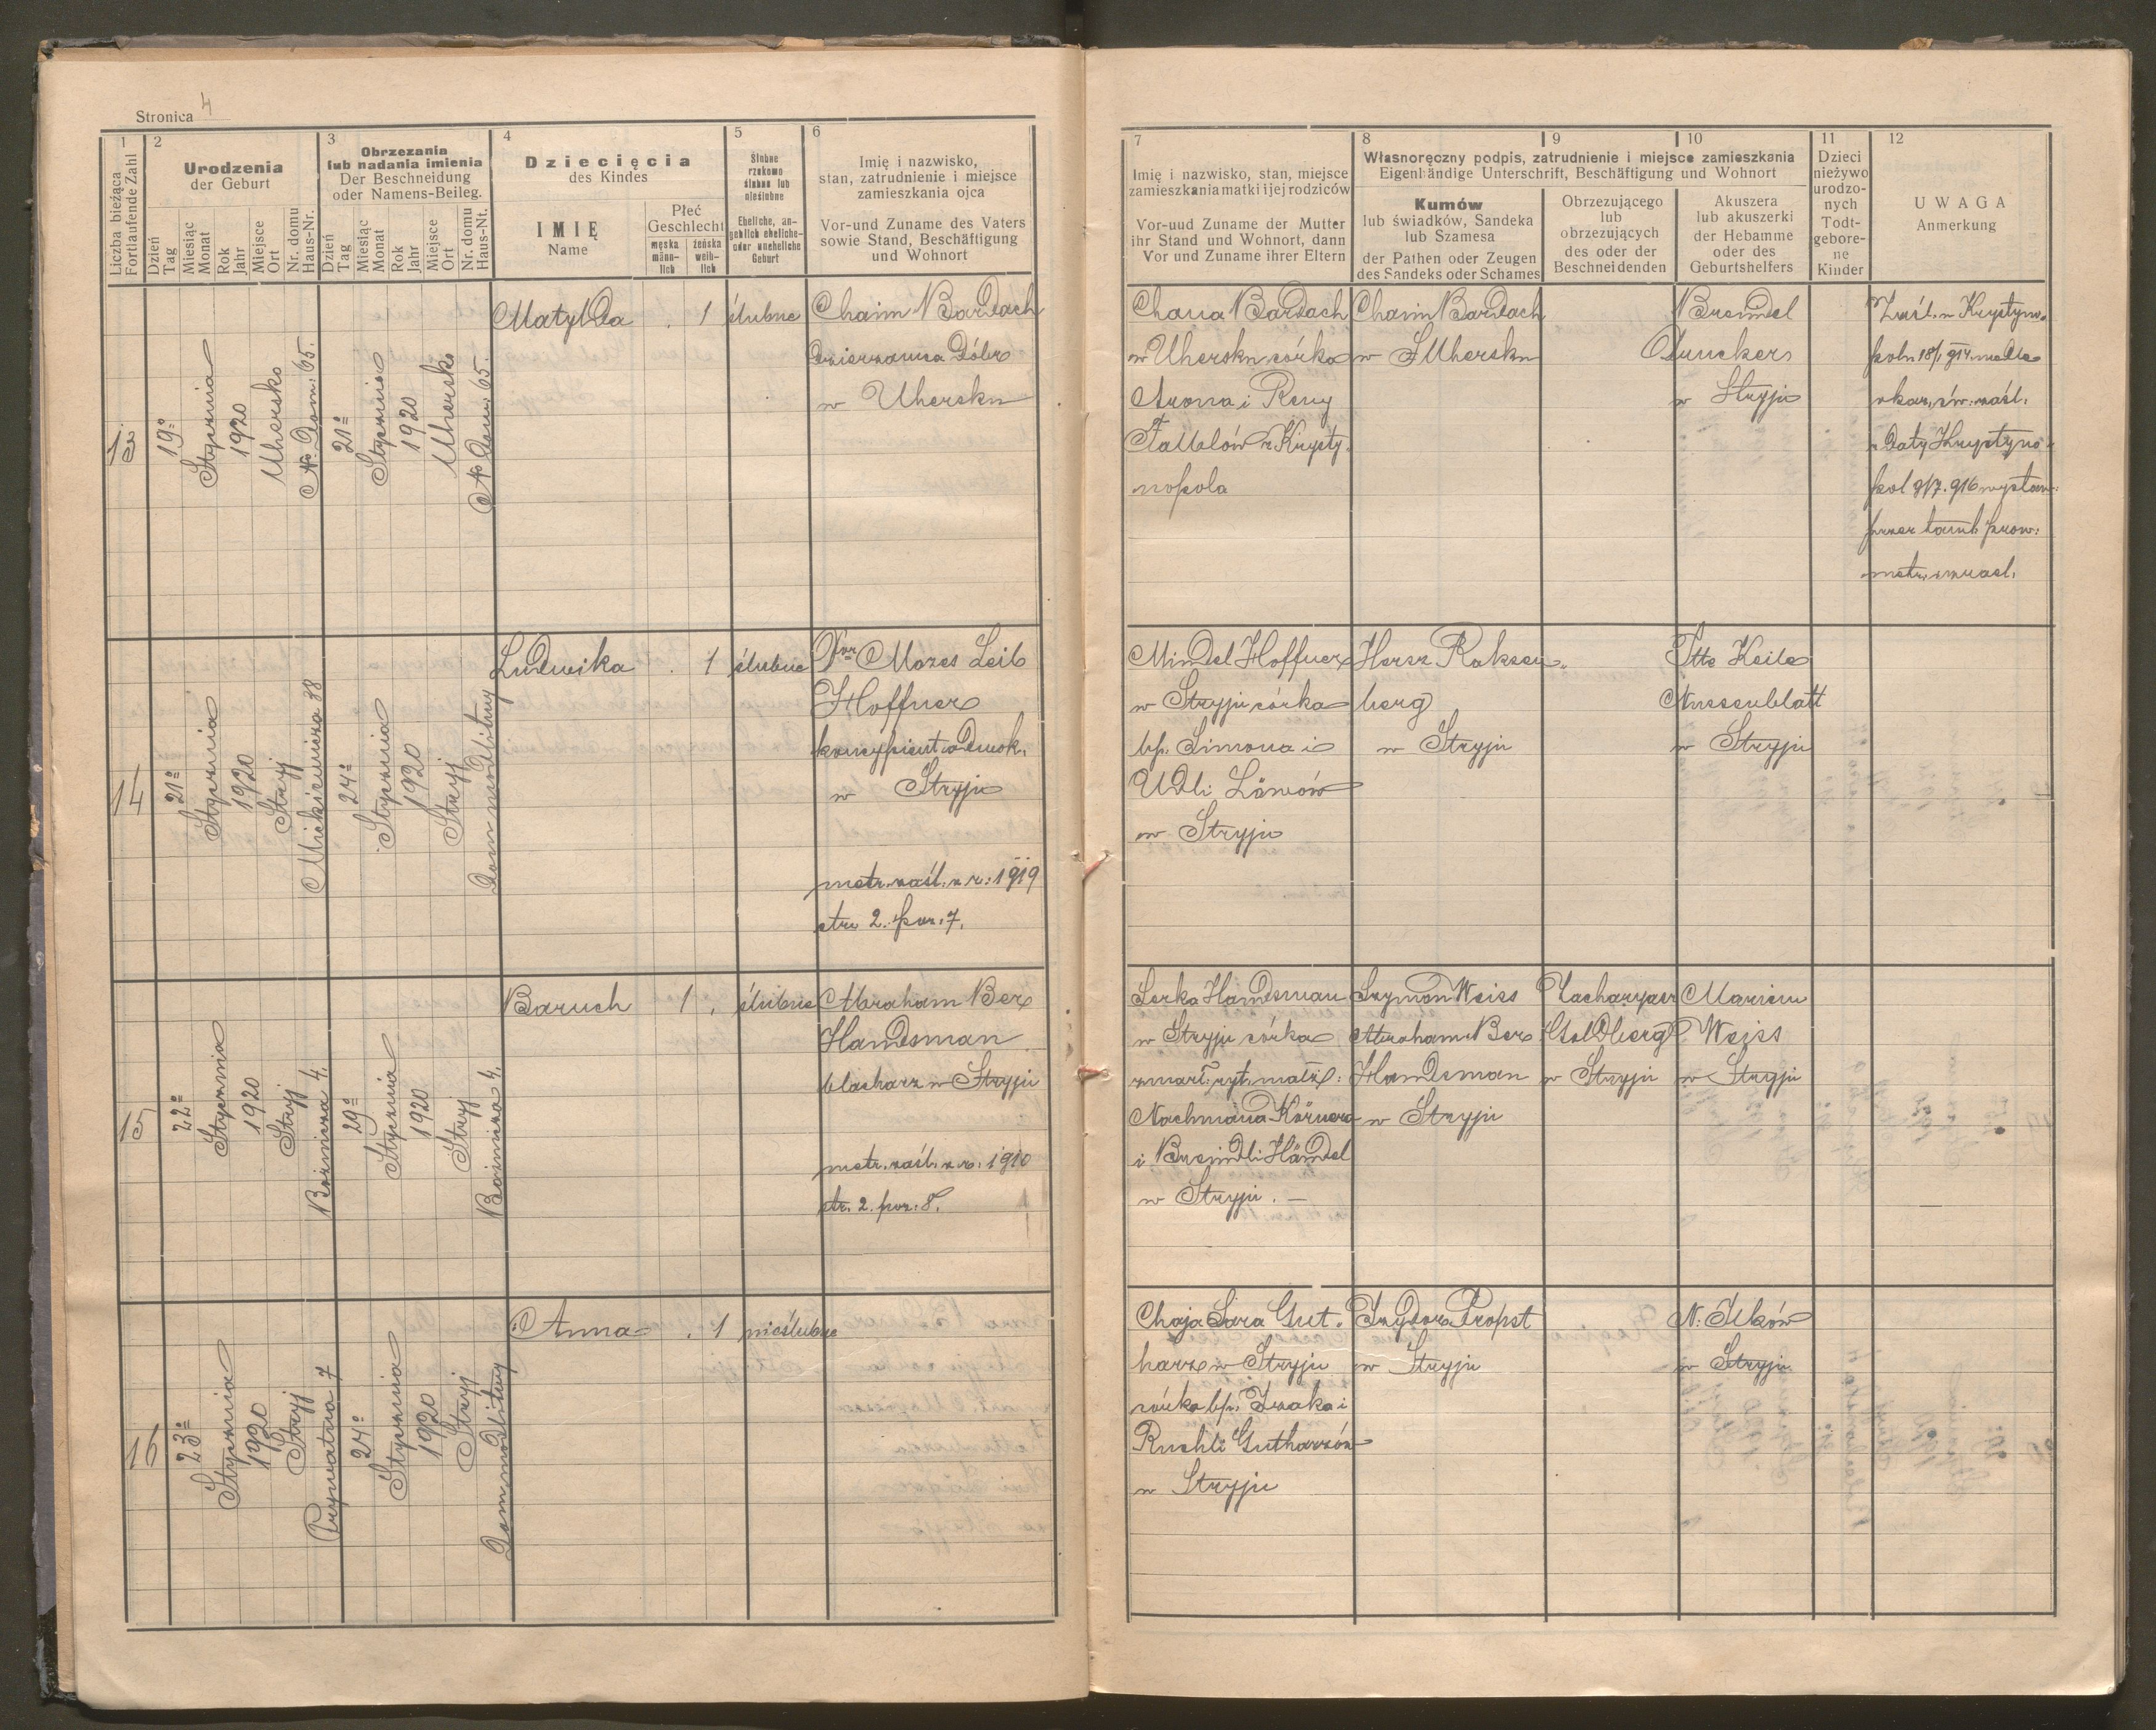 Stronica 4
1
Liczba bieżąca
Fortlaufende Zahl
2
Urodzenia
der Geburt
Dzień
Tag
Miesiąc
Monat
Rok
Jahr
Miejsce
Ort
Nr. domu
Haus-Nr.
3
Obrzezania
lub nadania imienia
Der Beschneidung
oder Namens-Beileg.
Dzień
Tag
Miesiąc
Monat
Rok
Jahr
Miejsce
Ort
Nr. domu
Haus-Nt.
4
Dziecięcia
des Kindes
IMIĘ
Name
Płeć
Geschlecht
męska
männ-
lich
żeńska
weib-
lich
5
Ślubne
rzekomo
ślubne lub
nieślubne
Eheliche, an-
geblich eheliche-
oder uneheliche
Geburt
6
Imię i nazwisko,
stan, zatrudnienie i miejsce
zamieszkania ojca
Vor-und Zuname des Vaters
sowie Stand, Beschäftigung
und Wohnort
7
Imię i nazwisko, stan, miejsce
zamieszkania matki i jej rodziców
Vor-uud Zuname der Mutter
ihr Stand und Wohnort, dann
Vor und Zuname ihrer Eltern
8
9
10
Własnoręczny podpis, zatrudnienie i miejsce zamieszkania
Eigenhändige Unterschrift, Beschäftigung und Wohnort
Kumów
lub świadków, Sandeka
lub Szamesa
der Pathen oder Zeugen
des Sandeks oder Schames
Obrzezującego
lub
obrzezujących
des oder der
Beschneidenden
Akuszera
lub akuszerki
der Hebamme
oder des
Geburtshelfers
11
Dzieci
nieżywo
urodzo-
nych
Todt-
gebore-
ne
Kinder
12
UWAGA
Anmerkung
13
19
Stycznia
1920
Uhersko
No Dom. 65.
21
Stycznia
1920
Uhersko
No Dom. 65.
Matylda
. 1
ślubne
Chaim Bardach
dzierzawca dóbr
w Uhersku
Chana Bardach
w Uhersku córka
Arona i Reny
z Kryсty-
nopola
Chaim Bardach
w Uhersku
Breindel
w Stryju
Zaśl. w Krystyno-
14
21
Stycznia
1920
Stryj
Mickiewicza 38
24
Stycznia
1920
Stryj
Dom modlitwy
Ludwika
. 1
ślubne
Mozes Leib
Hoffner
koncypient adwok.
w Stryju
metr. zaśl. z r: 1919
str. 2. poz: 7.
Mindel Hoffner
w Stryju córka
bp. Simona i
Udli Löwów
w Stryju
Hersz Roksen-
berg
w Stryju
Itte Keile
Nussenblatt
w Stryju
15
22
Stycznia
1920
Stryj
Bóżnicza 4.
29
Stycznia
1920
Stryj
Bóżnicza 4.
Baruch
1 .
ślubne
Abraham Ber
Handsman
blacharz w Stryju
metr. zaśl. z r. 1910
str. 2. poz: 8.
Serka Handsman
w Stryju córka
zmarł: ryt. małż:
Nachmana Körnera
i Breindli Händel
w Stryju. —
Szymon Weiss
Abraham Ber
Handsman
w Stryju
Zacharjasz
Goldberg
w Stryju
Mariem
Weiss
w Stryju
16
23
Stycznia
1920
Stryj
Prywatna 7
24
Stycznia
1920
Stryj
Dom modlitwy
Anna
. 1
nieślubne
Chaja Sara Gut-
harz w Stryju
córka bp: Izaka i
Ruchli Gutharzów
w Stryju
Izydor Propst
w Stryju
N. Ilków
w Stryju